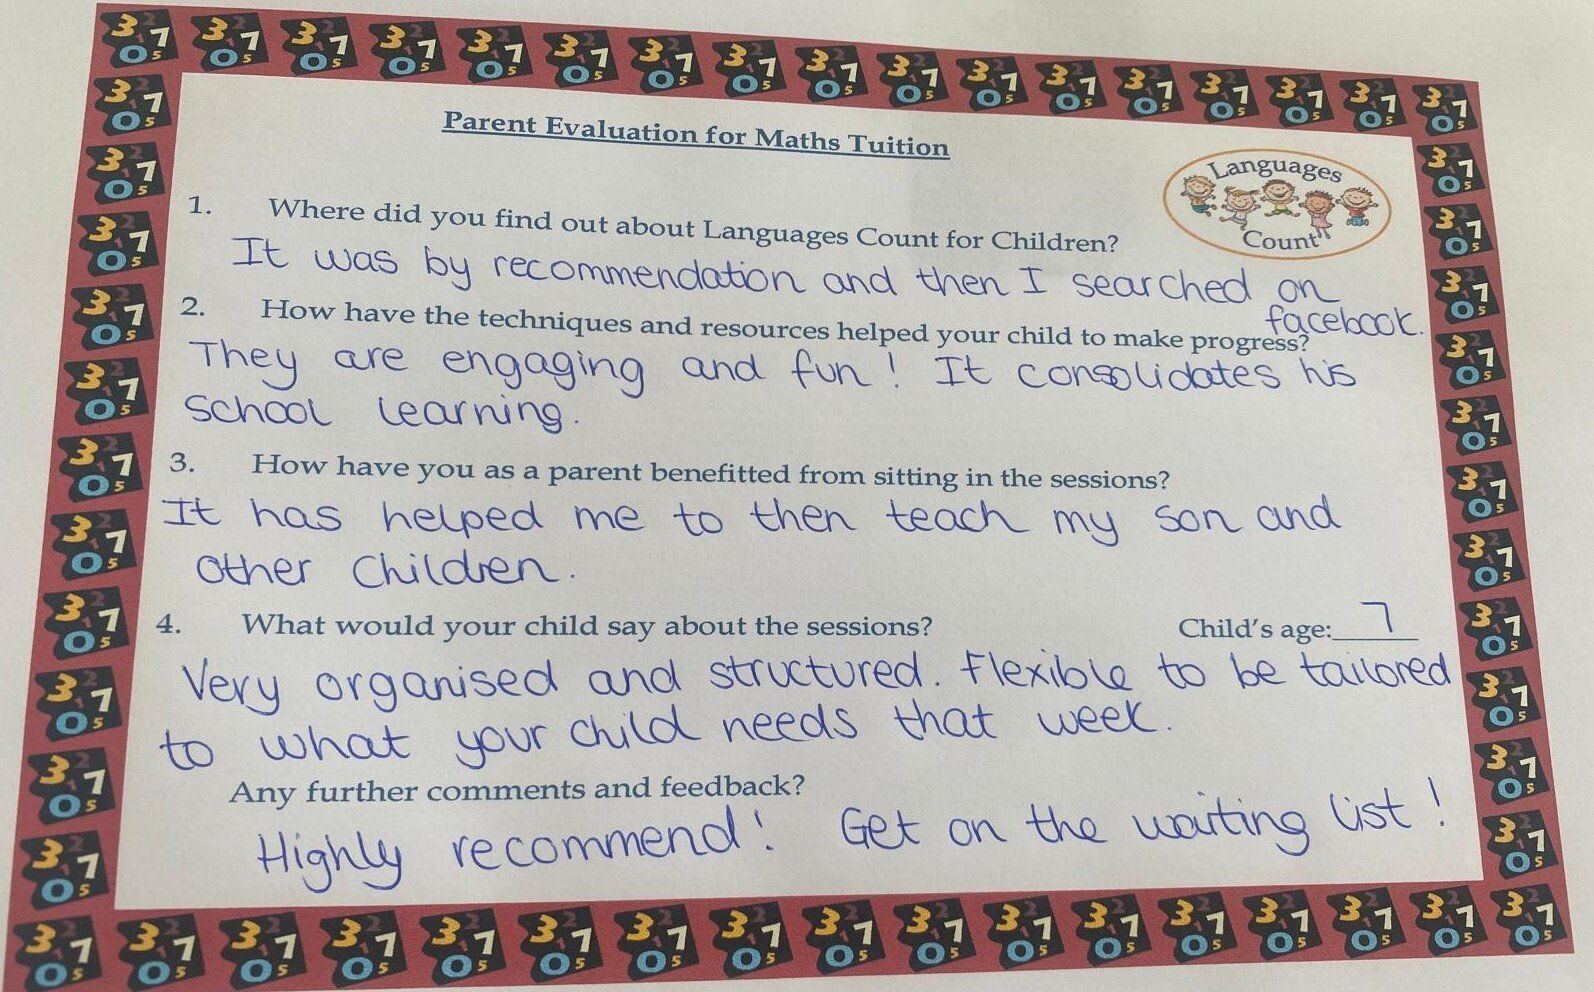 Parent Evaluation for Maths Tuition
Languages
Count
1. Where did you find out about Languages Count for Children?
It was by recommendation and then I searched on
facebook.
2. How have the techniques and resources helped your child to make progress?
They are engaging and fun! It consolidates his
school learning.
3. How have you as a parent benefitted from sitting in the sessions?
It has helped me to then teach my son and
other children.
4. What would your child say about the sessions? Child's age: 7
Very organised and structured. Flexible to be tailored
to what your child needs that week.
Any further comments and feedback?
Highly recommend! Get on the waiting list!